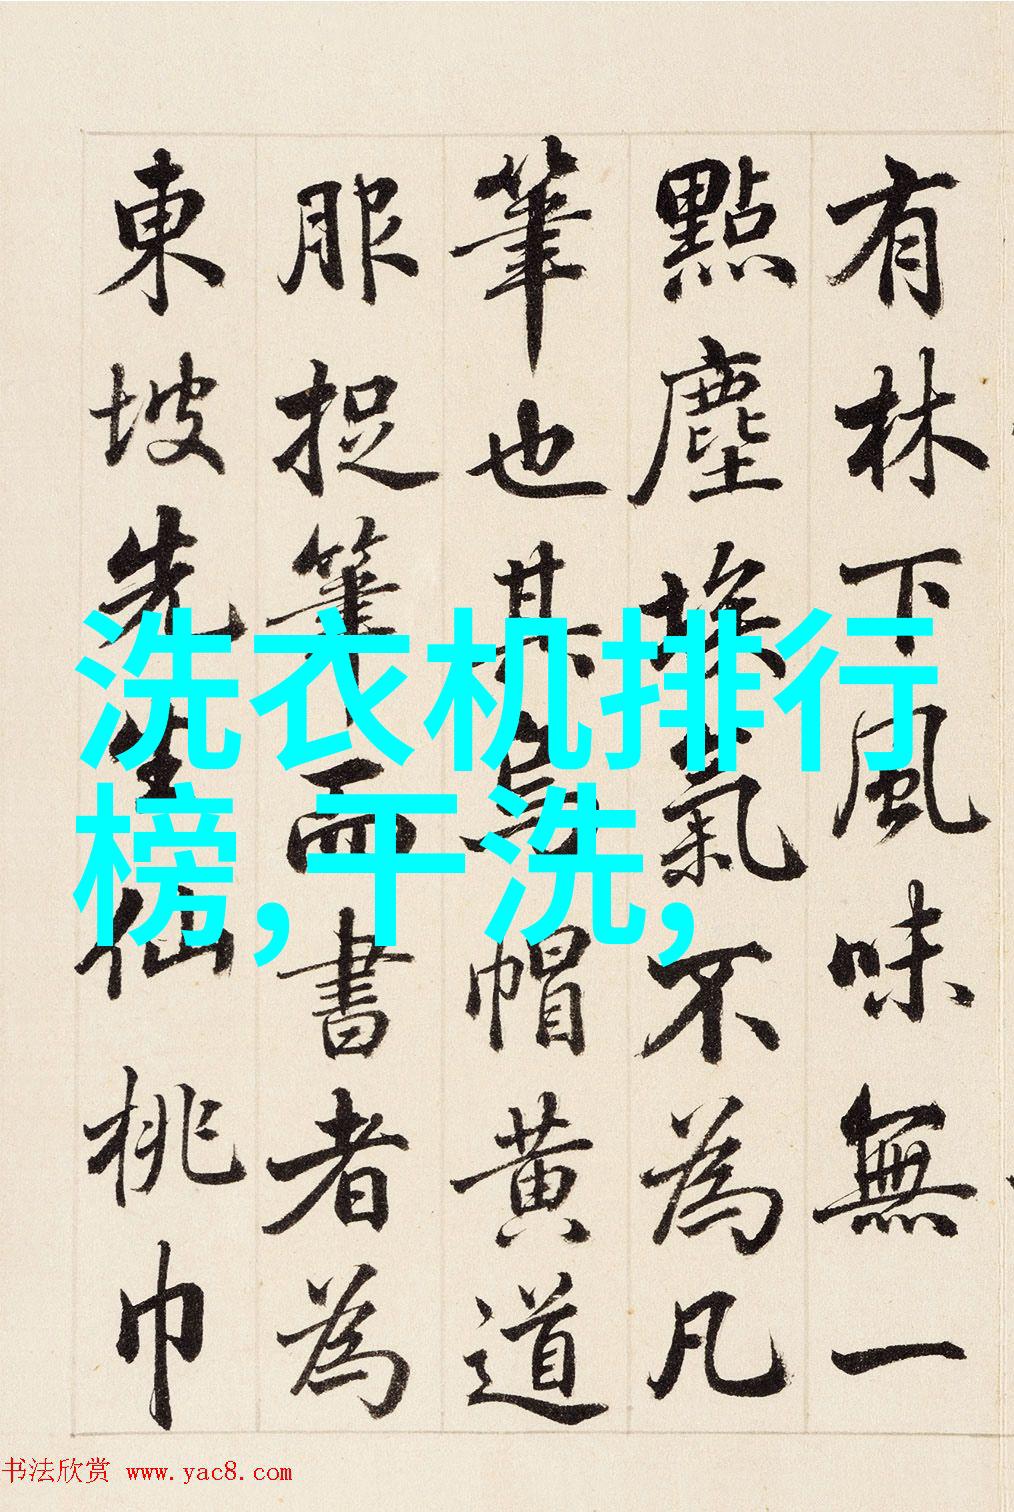 有林下風味無一
點塵埃氣不為凡
筆也其烏帽黃道
服捉筆而書者為
東坡先生仙桃巾
洗衣机排行
榜,干洗,
书法欣赏 www.yac8.com